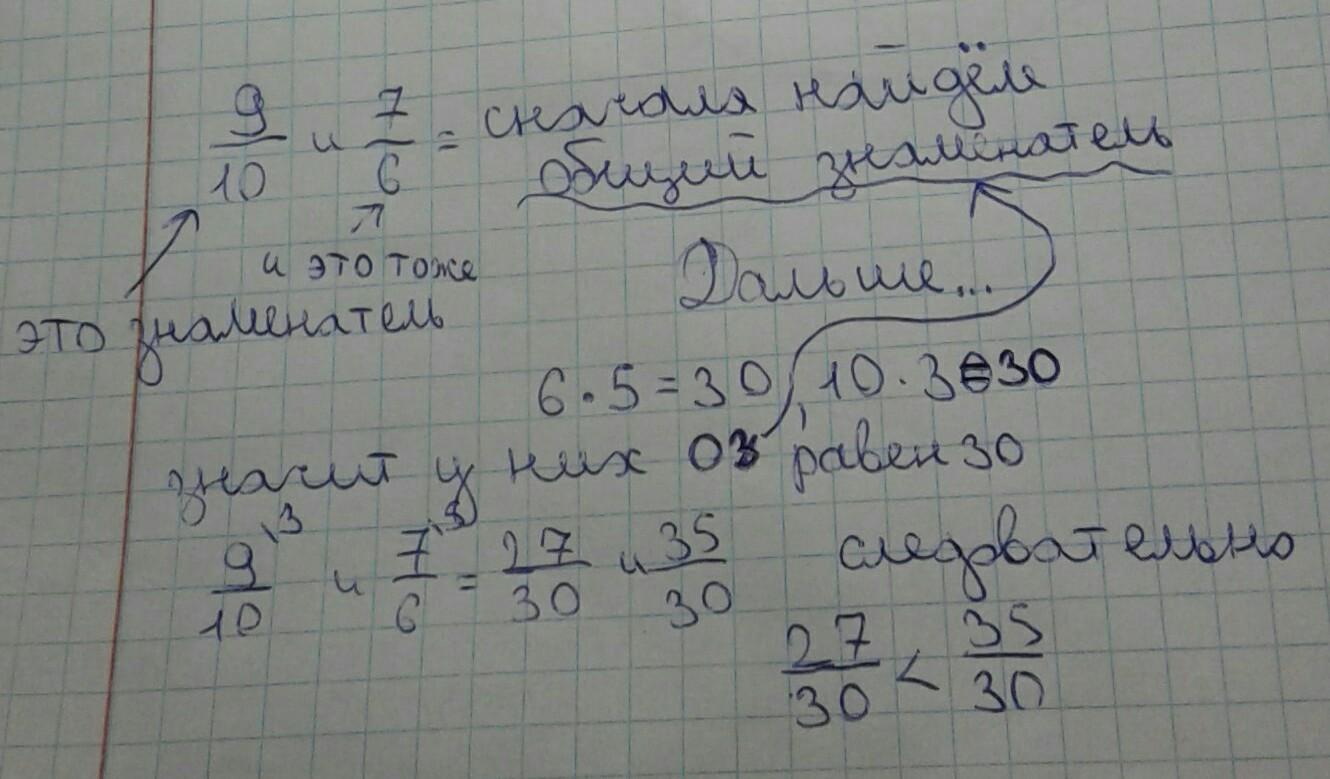 9/10 и 7/6 = сначала найдём
общий знаменатель
и это тоже
это знаменатель
Дальше...
6 · 5 = 30, 10 · 3 = 30
значит у них ОЗ равен 30
9/10 \3 и 7/6 \5 = 27/30 и 35/30 следовательно
27/30 < 35/30